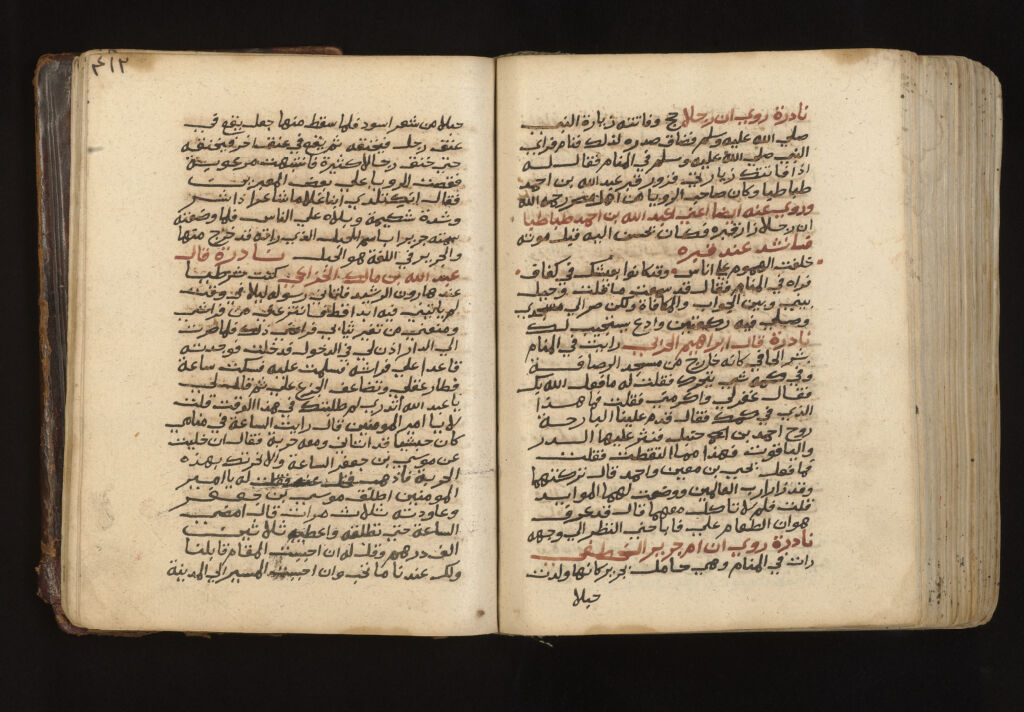 نادرة روي ان رجلا حج وفاتته زيارة النبي
صلي الله عليه وسلم فضاق صدره لذلك فنام فراي
النبي صلي الله عليه وسلم في المنام فقال له
اذا فاتتك زيارتي فزور قبر عبد الله بن احمد
طباطبا وكان صاحب الرويا من اهل مصر رحمه الله
وروي عنه ايضا اعني لعبد الله بن احمد طباطبا
ان رجلا زار قبره وكان يحسن اليه قبل موته
فانشد عند قبره
خلفت الهموم علي اناس وقد كانوا بعيشك في كفاف
فراه في المنام فقال قد سمعت ما قلت وحيل
بيني وبين الجواب والمكافاة ولكن صر الي مسجدي
وصلي فيه ركعتين وادع يستجيب لك
نادرة قال ابراهيم الحربي رايت في المنام
بشر الحافي كانه خارج من مسجد الرصافة
وفي كمه شي يتحرك فقلت له ما فعل الله بك
فقال غفر لي واكرمني فقلت فما هذا
الذي في كمك فقال قدم علينا البارحة
روح احمد بن حنبل فنثر عليها الدر
والياقوت فهذا مما التقطت فقلت
فما فعل يحيي بن معين واحمد قال تركتهما
وقد زارا رب العالمين ووضعت لهما الموايد
قلت فلم لا تاكل معهما قال قد عرف
هوان الطعام علي فاباحني النظر الي وجهه
نادرة روي ان ام جرير الخطفي
رات في المنام وهي حامل بجرير كانها ولدت
حبلا
٤١٢
حبلا من شعر اسود فلما سقط منها جعل يقع في
عنق رجل فيخنقه ثم يقع في عنق اخر فيخنقه
حتي خنق رجالا كثيرة فانتبهت مرعوبة
فقصت الرويا علي بعض المعبرين
فقال انك تلدي ابنا غلاما شاعرا ذا شر
وشدة شكيمة وبلاه علي الناس فلما وضعته
سمته جريرا باسم الحبل الذي راته قد خرج منها
والجرير في اللغة هو الحبل نادرة قال
عبد الله بن مالك الخزاعي كنت
عند هارون الرشيد فاتاني رسوله ليلا في وقت
لم ياتيني فيه ابدا قط فانتزعني من فراشي
ومنعني من تغير ثيابي فراعني ذلك فلما صرت
الي الدار اذن لي في الدخول فدخلت فوجدته
قاعدا علي فراشه فسلمت عليه فسكت ساعة
فطار عقلي وتضاعف الجزع علي ثم قال لي
يا عبد الله اتدري لم طلبتك في هذا الوقت قلت
لا يا امير المومنين قال رايت الساعة في منامي
كان حبشيا قد اتاني ومعه حربة فقال ان خليت
عن موسي بن جعفر الساعة والا نحرتك بهذه
الحربة فاذهب فخل عنه فقلت له يا امير
المومنين اطلق موسي بن جعفر
وعاودته ثلاث مرات قال امضي
الساعة حتي تطلقه واعطيه ثلاثين
الف درهم وقل له ان احببت المقام قابلنا
ولك عندنا ما تحب وان احببت المسير الي المدينة